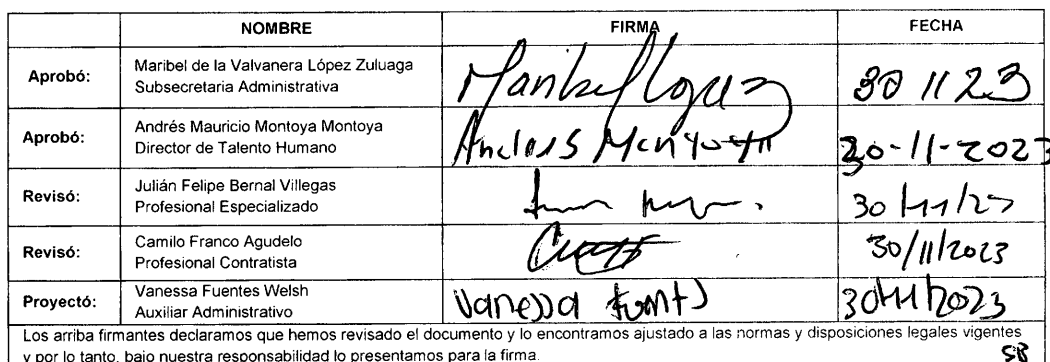 NOMBRE FIRMA FECHA
Aprobó: Maribel de la Valvanera López Zuluaga
Subsecretaria Administrativa
Maribel López 30 11 23
Aprobó: Andrés Mauricio Montoya Montoya
Director de Talento Humano
Andrés Montoya 30-11-2023
Revisó: Julián Felipe Bernal Villegas
Profesional Especializado
30/11/23
Revisó: Camilo Franco Agudelo
Profesional Contratista
30/11/2023
Proyectó: Vanessa Fuentes Welsh
Auxiliar Administrativo
Vanessa Fuentes 30/11/2023
Los arriba firmantes declaramos que hemos revisado el documento y lo encontramos ajustado a las normas y disposiciones legales vigentes
y por lo tanto, bajo nuestra responsabilidad lo presentamos para la firma.